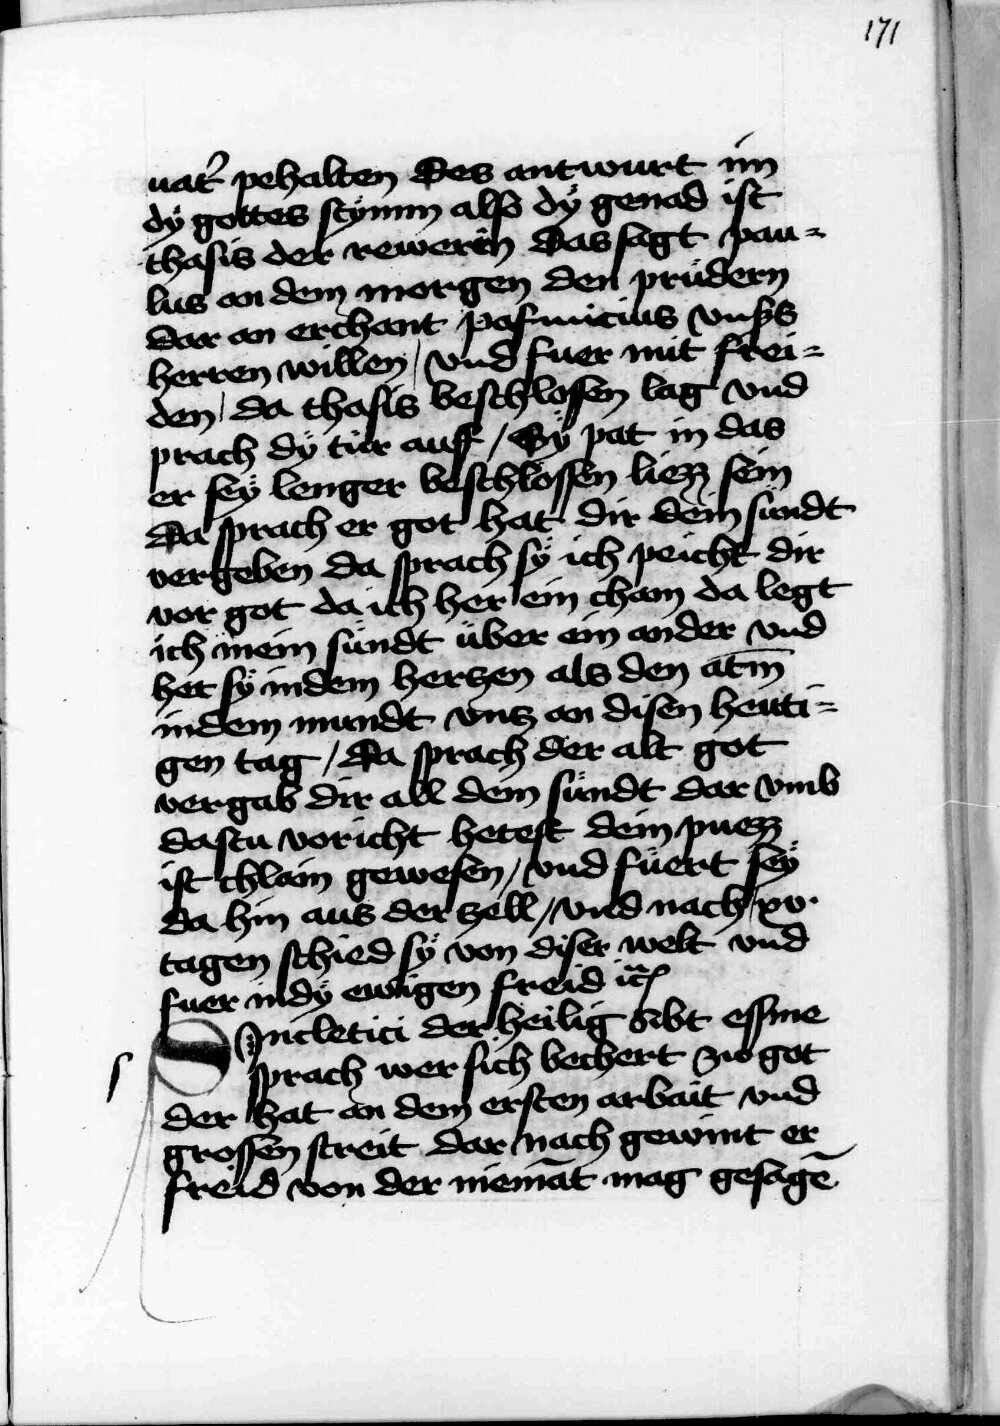 171
uat᷑ pehalten Des antwurt im
dÿ gottes stÿmm also dÿ genad ist
thasis der rewerin Das sagt pau=
lus an dem morgen den prüdern
dar an erchant pafnucius vnsers
herren willen / vnd fuer mit frei=
den / da thasis beschlossen lag vnd
prach dÿ tür auff / Sÿ pat in das
er seÿ lenger beschlossen liezz sein
Da sprach er got hat dir dein sündt
vergeben da sprach sÿ ich peicht dir
vor got da ich her ein cham da legt
ich mein sündt über ein ander vnd
het sÿ in dem herczen als den atm̄
in dem mundt vncz an disen heuti=
gen tag / Da sprach der alt got
vergab dir all dein sündt dar vmb
dastu voricht hetest dein puezz
ist chlain gewesen / vnd füert seÿ
da hin aus der zell / vnd nach xv·
tagen schied sÿ von diser welt vnd
fuer in dÿ ewigen freid ꝛc
Sincletici der heilig sibt essine
s
sprach wer sich bechert zuo got
der hat an dem ersten arbait vnd
grossen streit dar nach gewint er
freid von der niemāt mag gesagē